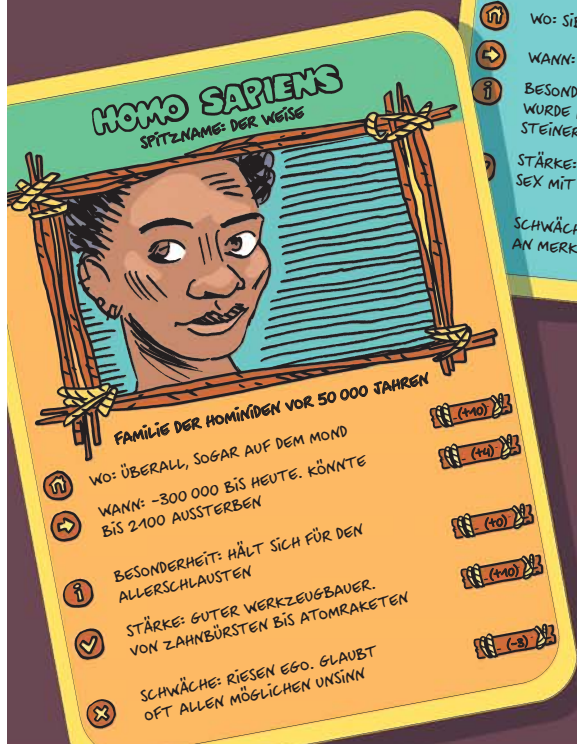 HOMO SAPIENS
SPITZNAME: DER WEISE
FAMILIE DER HOMINIDEN VOR 50 000 JAHREN
WO: ÜBERALL, SOGAR AUF DEM MOND
(+10)
WANN: -300 000 BIS HEUTE. KÖNNTE
BIS 2100 AUSSTERBEN
(+4)
BESONDERHEIT: HÄLT SICH FÜR DEN
ALLERSCHLAUSTEN
(+0)
STÄRKE: GUTER WERKZEUGBAUER.
VON ZAHNBÜRSTEN BIS ATOMRAKETEN
(+10)
SCHWÄCHE: RIESEN EGO. GLAUBT
OFT ALLEN MÖGLICHEN UNSINN
(-3)
WO:
WANN:
WURDE
STÄRKE:
SEX MIT
AN